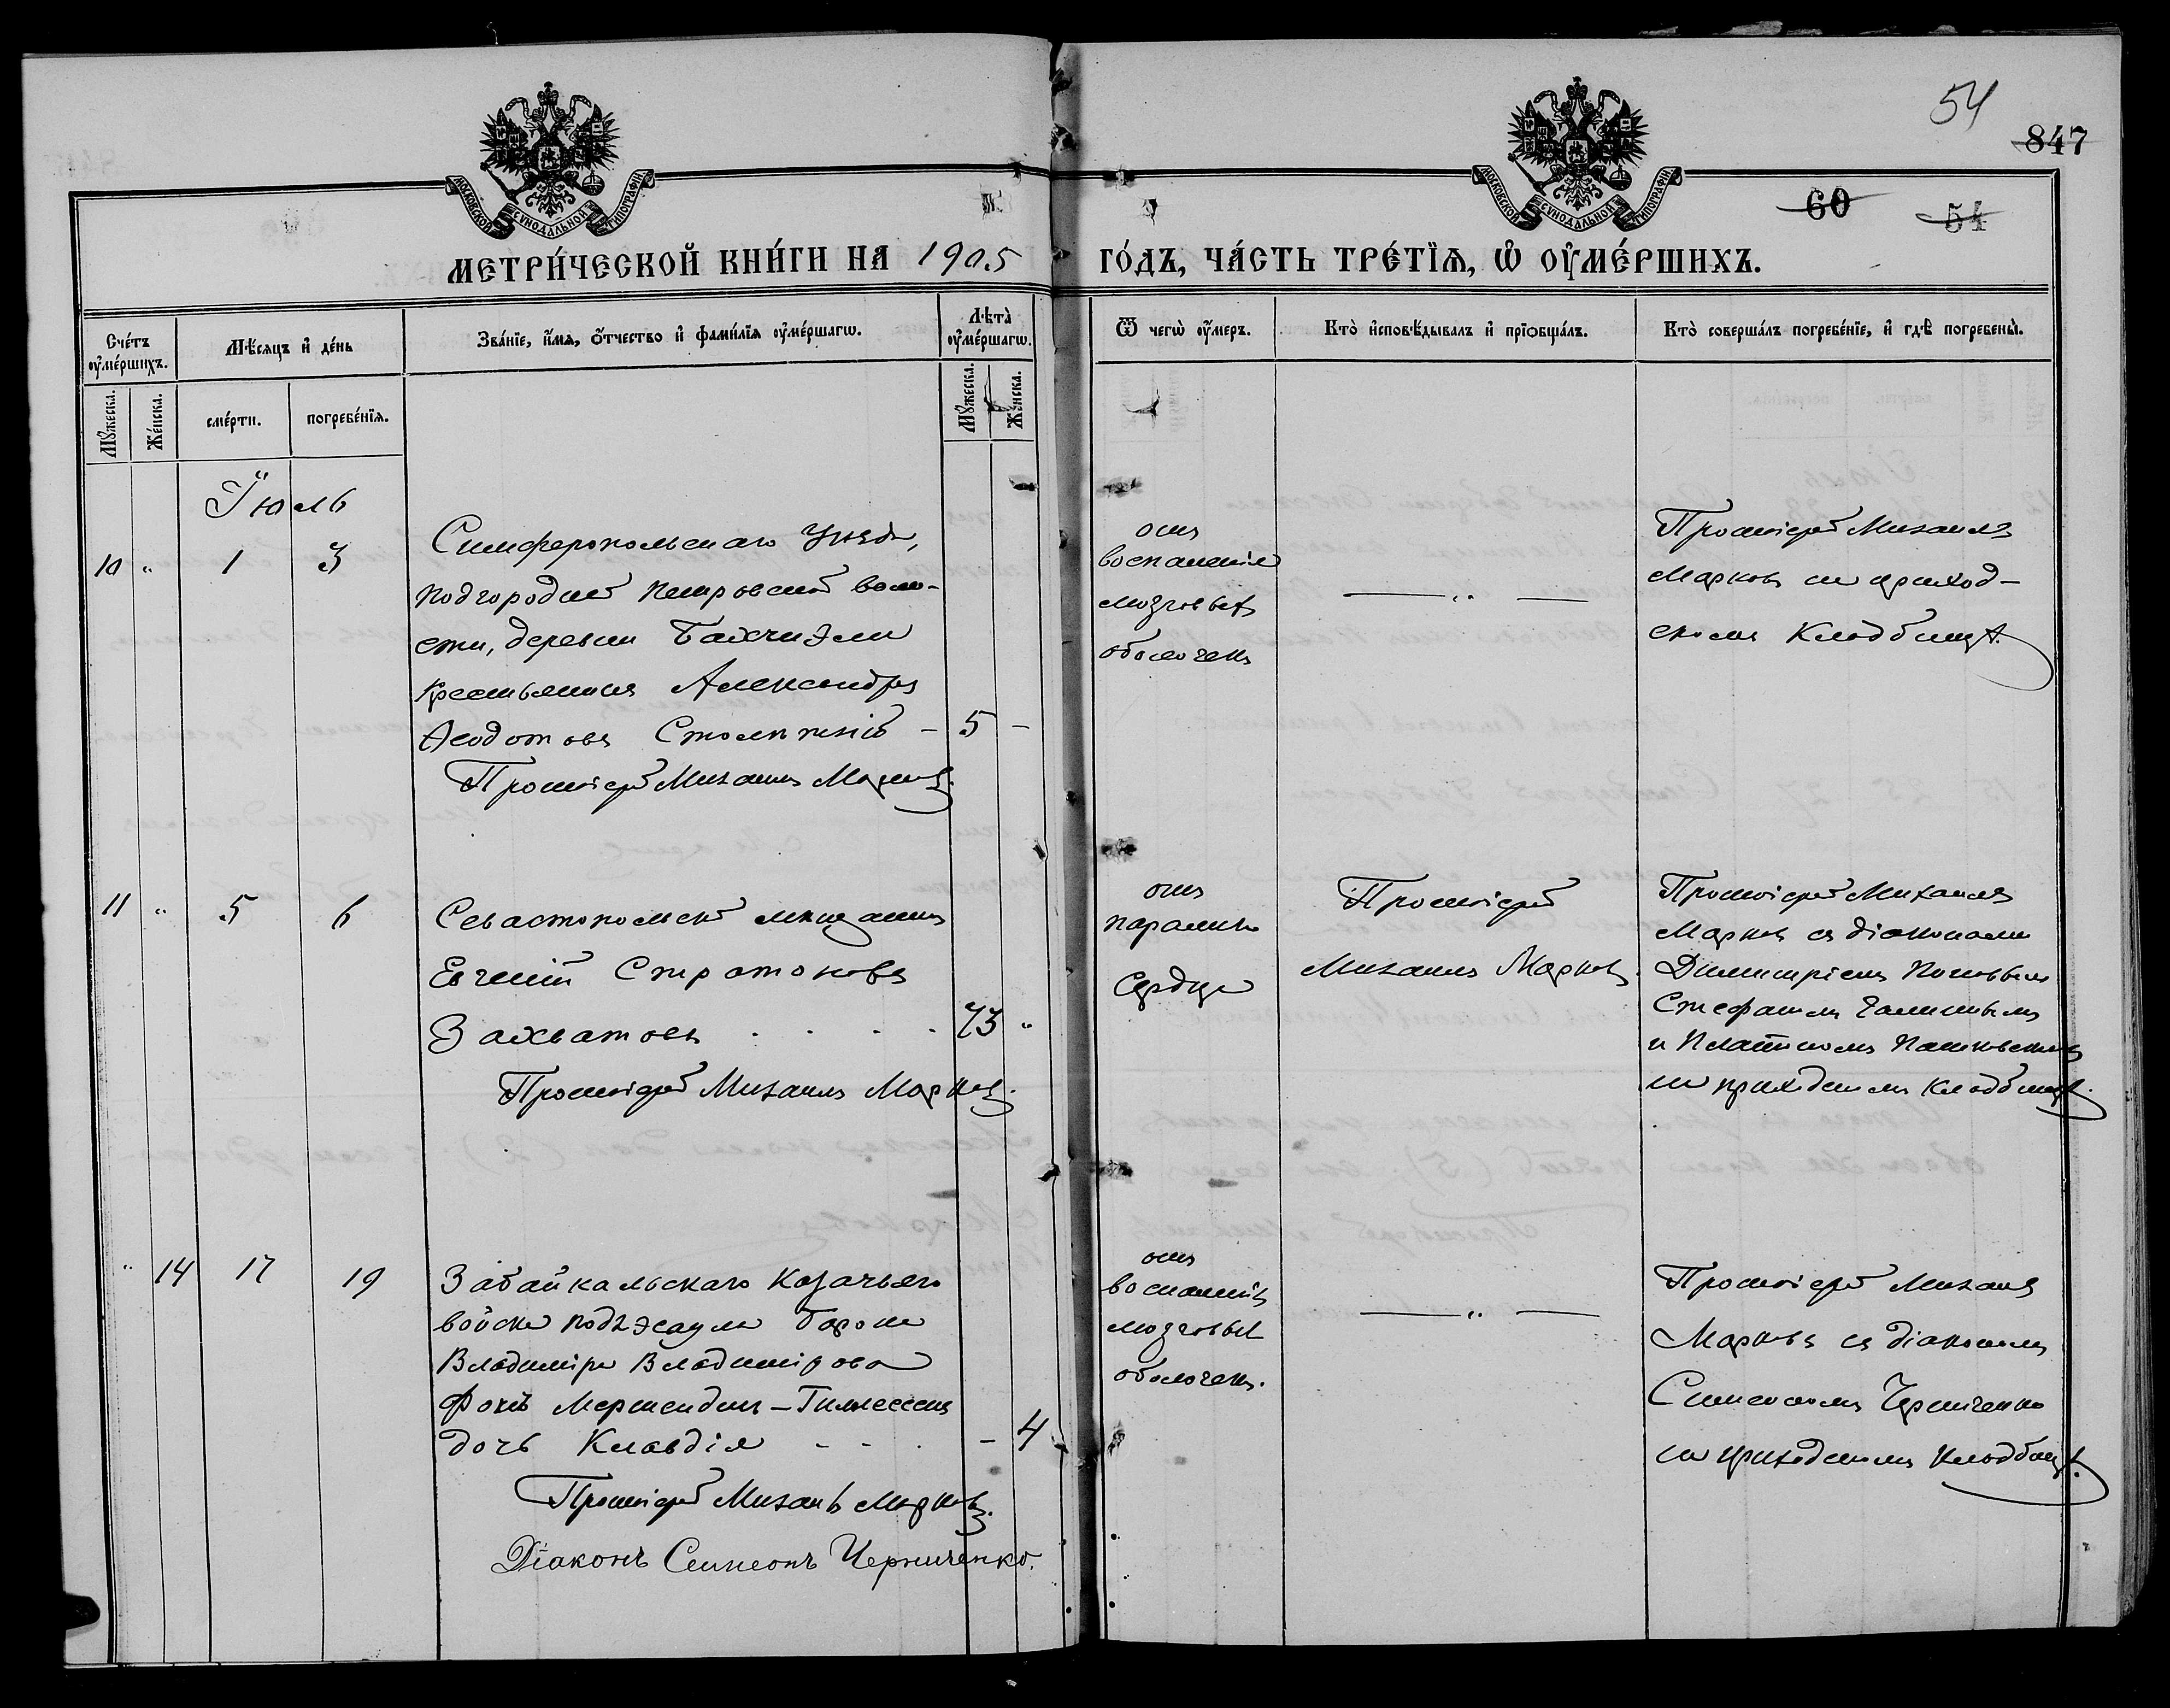 54
847
60
54
МОСКОВСКОЙ СѴНОДАЛЬНОЙ ТИПОГРАФІИ
МОСКОВСКОЙ СѴНОДАЛЬНОЙ ТИПОГРАФІИ
МЕТРИ́ЧЕСКОЙ КНИ́ГИ НА 1905 ГО́ДЪ, ЧА́СТЬ ТРЕ́ТЇѦ, Ѡ҆ ОУ҆МЕ́РШИХЪ.
Сче́тъ оу҆ме́ршихъ.
Мѣ́сяцъ и҆ де́нь
Зва́нїе, и҆́мѧ, ѻ҆́тчество и҆ фами́лїѧ оу҆ме́ршагѡ.
Лѣ̀та̀ оу҆ме́ршагѡ.
Ѿ чегѡ̀ оу҆́меръ.
Кто̀ и҆сповѣ́дывалъ и҆ прїѡбща́лъ.
Кто̀ соверша́лъ погребе́нїе, и҆ гдѣ̀ погребены̀.
Мꙋ́жеска.
Же́нска.
сме́рти.
погребе́нїѧ.
Мꙋ́жеска.
Же́нска.
Іюль
10 " 1 3
Симферопольскаго Уѣзда,
подгородне Петровской воло-
сти, деревни Бахчи Эли
крестьянинъ Александръ
Ѳеодотовъ Столѣтній – 5 –
Протоіерей Михаилъ Марковъ.
отъ
воспаленія
мозговыхъ
оболочекъ
— " —
Протоіерей Михаилъ
Марковъ на приход-
скомъ кладбищѣ.
11 " 5 6
Севастопольскій мѣщанинъ
Евгеній Стратоновъ
Захватовъ . . . . 73 "
Протоіерей Михаилъ Марковъ.
отъ
паралича
сердца
Протоіерей
Михаилъ Марковъ.
Протоіерей Михаилъ
Марковъ съ діаконами
Димитріемъ Поповымъ
Стефаномъ
и Платономъ
на приходскомъ кладбищѣ.
" 14 17 19
Забайкальскаго Козачьяго
войска подъэсаула барона
Владиміра Владимірова
фонъ Мершейдтъ-Гиллессемъ
дочь Клавдія - - . – 4
Протоіерей Михаилъ Марковъ.
Діаконъ Симеонъ Черниченко.
отъ
воспаленія
мозговых
оболочекъ.
— " —
Протоіерей Михаилъ
Марковъ съ діакономъ
Симеономъ Черниченко
на приходскомъ кладбищѣ.